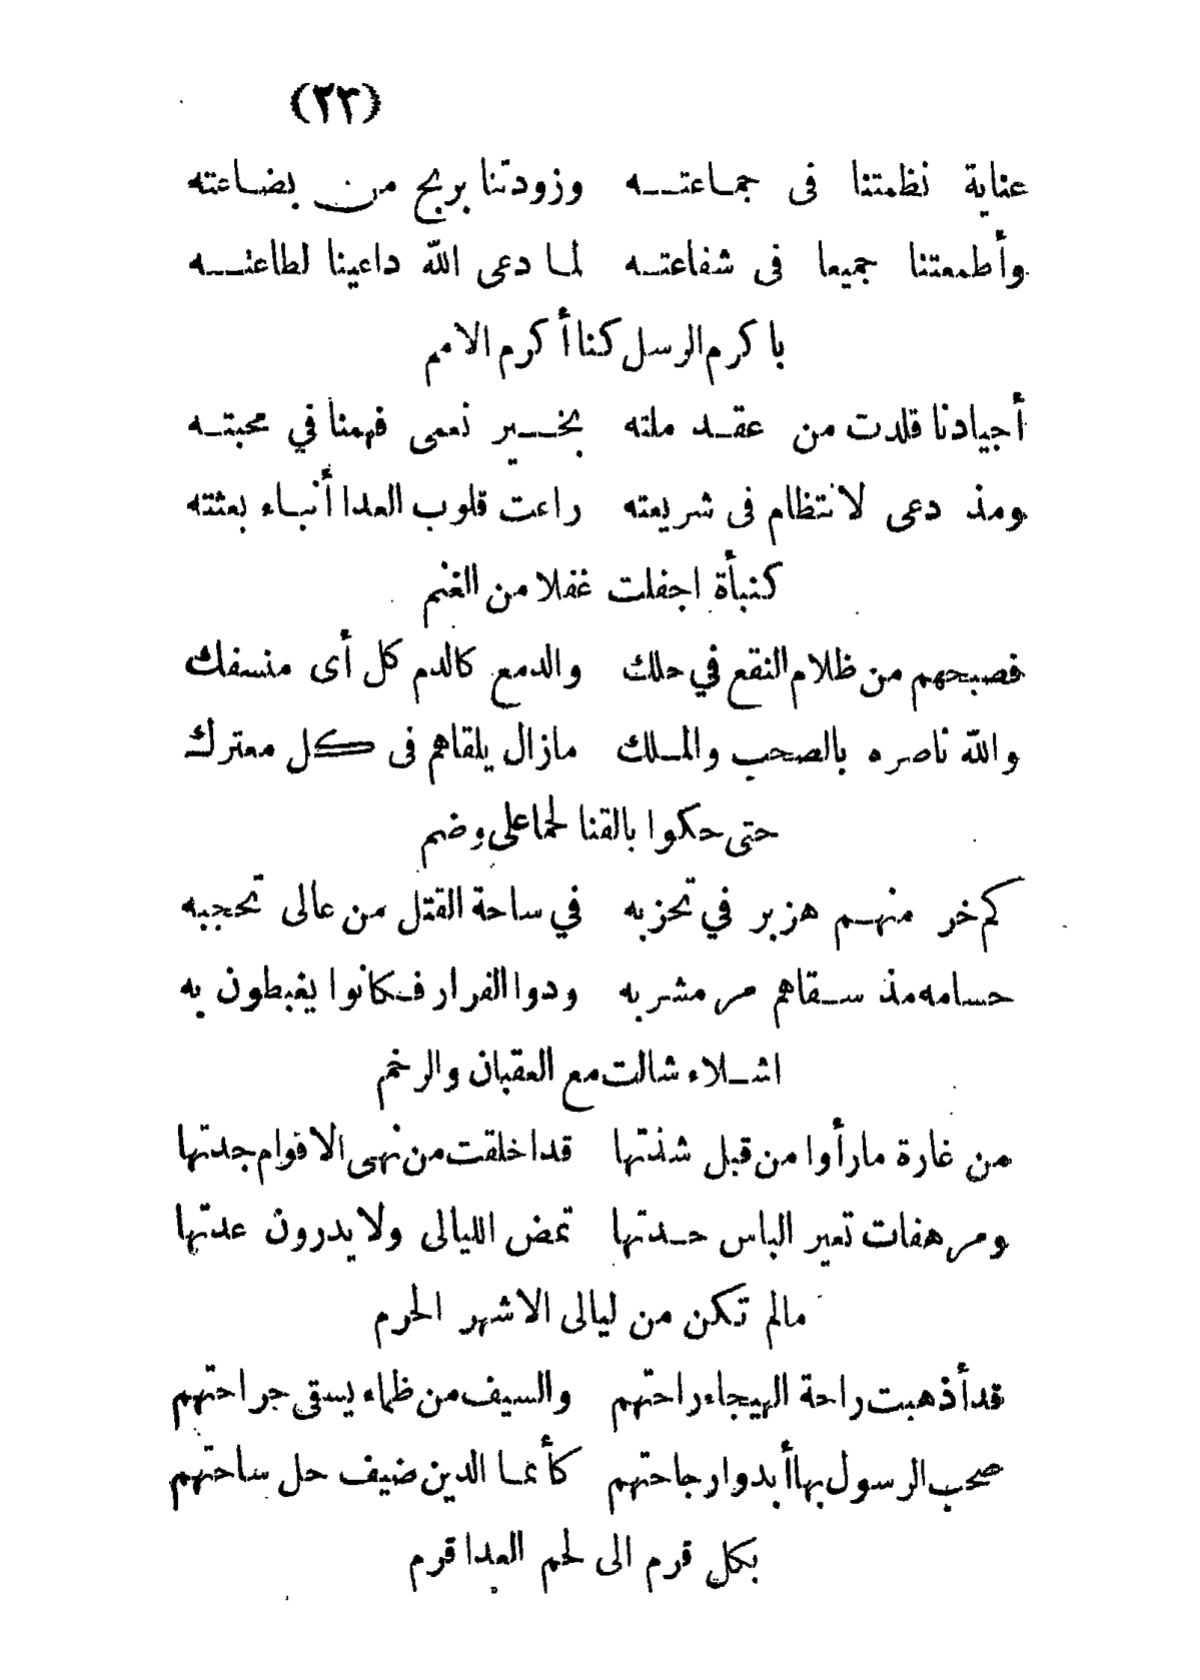 (٢٣)
عناية نظمتنا فى جماعته وزودتنا بربح من بضاعته
وأطمعتنا جميعا فى شفاعته لما دعى الله داعينا لطاعته
باكرم الرسل كنا أكرم الامم
أجيادنا قلدت من عقد ملته بخير نعمى فهمنا في محبته
ومذ دعى لانتظام فى شريعته راعت قلوب العدا أنباء بعثته
كنبأة اجفلت غفلا من الغنم
فصبحهم من ظلام النقع في حلك والدمع كالدم كل أى منسفك
والله ناصره بالصحب والملك مازال يلقاهم فى كل معترك
حتى حكوا بالقنا لحما على وضم
كم خر منهم هزبر في تحزبه في ساحة القتل من عالى تحجبه
حسامه مذ سقاهم مر مشربه ودوا الفرار فكانوا يغبطون به
اشلاء شالت مع العقبان والرخم
من غارة مارأوا من قبل شدتها قداخلقت من نهى الاقوام جدتها
ومرهفات تعير الباس حدتها تمض الليالى ولا يدرون عدتها
مالم تكن من ليالى الاشهر الحرم
قدأذهبت راحة الهيجاء راحتهم والسيف من ظماء يسقى جراحتهم
صحب الرسول بهاأبدوا رجاحتهم كأنما الدين ضيف حل ساحتهم
بكل قرم الى لحم العدا قرم